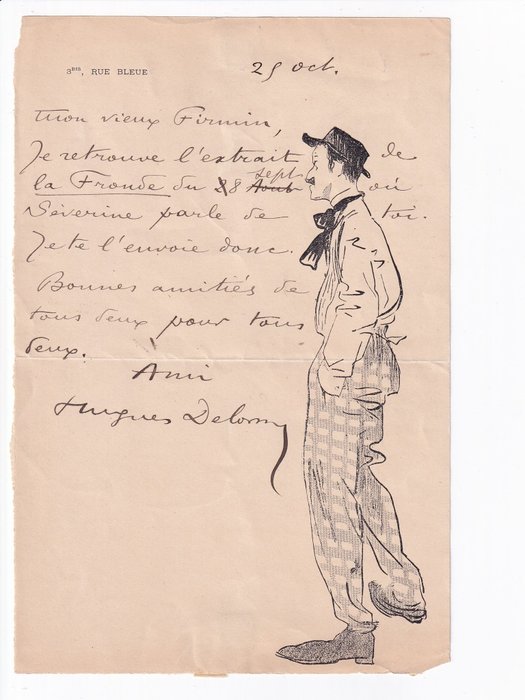 3BIS, RUE BLEUE
25 oct.
Mon vieux Firmin,
Je retrouve l'extrait de
la Fronde du 8 Sept. où
Séverine parle de toi.
Je te l'envoie donc.
Bonnes amitiés de
tous deux pour tous
deux.
Ami
Hugues Delorme